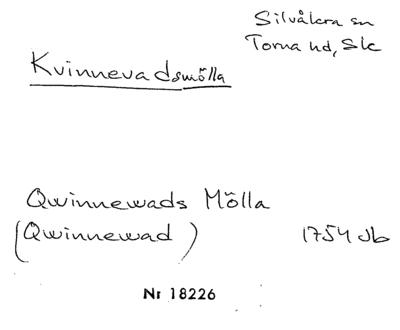 Silvåkra sn
Torna hd, Sk
Kvinnevadsmölla
Qwinnewads Mölla
(Qwinnewad) 1754 Jb
Nr 18226